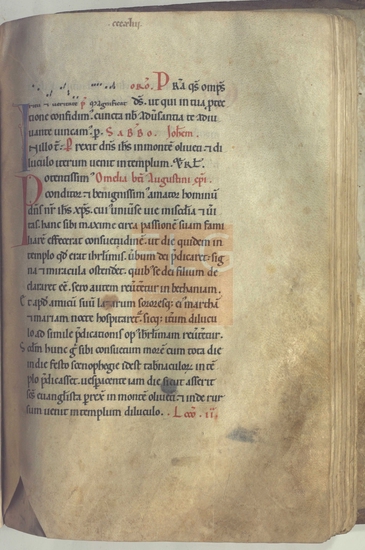 ccccxliij
oro. Pra qs omps
et veritas p magnificat ds. ut qui in tua, prec
tione confidim. cuncta nb aduersantia te adiu
uante uincam. p. Sabbo. Iohem.
In illo t. Prexit dns ihs in monte oliueti. et di
luculo iterum uenit in templum.
Potentissim Omelia bti Augustini epi.
conditor et benignissim amator hominum
dns nr ihs xps. cui uniuerse uie misedia et ueri
tas. hanc sibi maxime circa passione suam fami
liare effecerat consuetudine. ut die quidem in
templo qd erat ihrlimis. uerbum dei predicaret. sig
na et miracula ostenderet. quib se dei filium de
clararet ee. sero autem reuerteretur in bethaniam.
et apd amicum suum lazarum sororesq; ei martham
et mariam nocte hospitaret. sicq; iterum dilucu
lo ad simile predicationis op ihrlimam reuertetur.
Sedm hunc g sibi consuetum more cum tota die
in die festo scenophegie idest tabnaculor. in te
plo predicasset. uesperascente iam die sicut asserit
scs euanglista prexit in monte oliueti. et inde rur
sum uenit in templum diluculo. Lectio. ii.